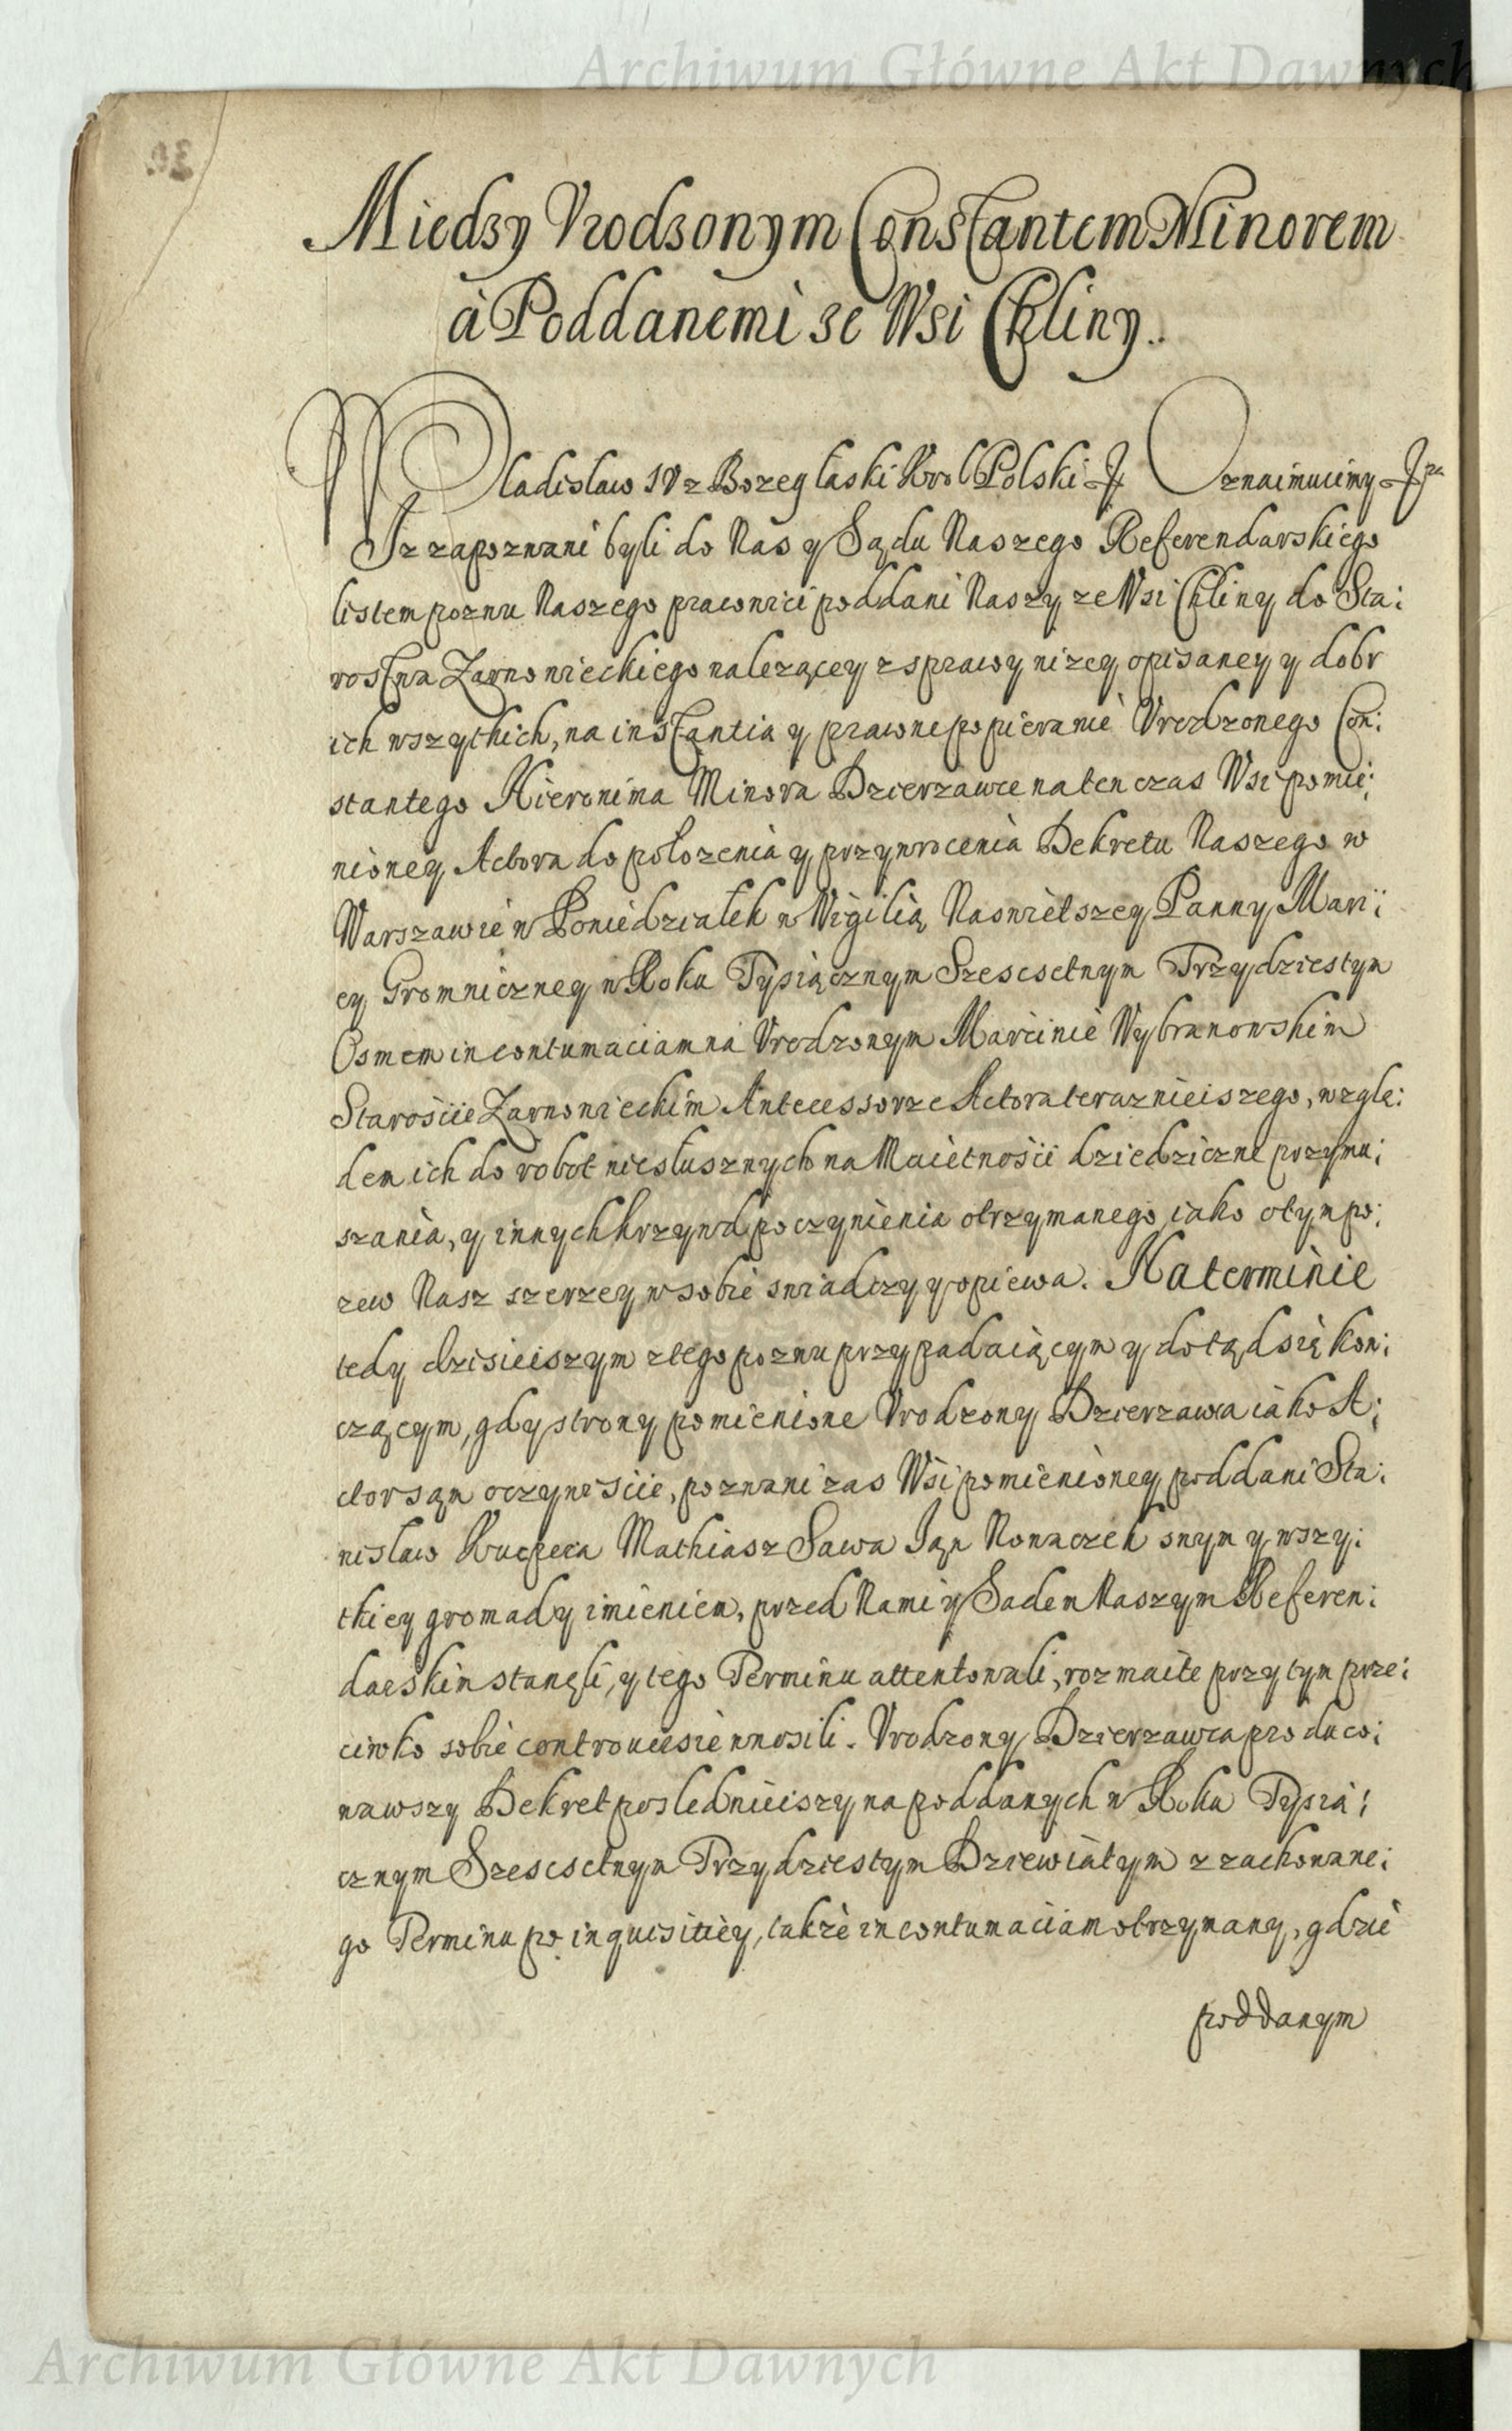 Archiwum Główne Akt Dawnych
Miedzy Vrodzonym Constantem Minorem
à Poddanemi ze Wsi Chliny.
Wladislaw IV z Bozey łaski Krol Polski Oznaimuiemy
Iz zapoznani byli do Nas y Sądu Naszego Referendarskiego
listem pozwu Naszego pracowici poddani Naszy ze Wsi Chliny do Sta:
rostwa Zarnowieckiego nalezącey z sprawy nizey opisaney y dobr
ich wszytkich, na instantia y prawne popieranie Vrodzonego Con:
stantego Hieronima Minora Dzierzawce na ten czas Wsi pomie:
nioney Actora do polozenia y przywrocenia Dekretu Naszego w
Warszawie w Poniedziałek w Wigilią Naswietszey Panny Mari:
ey Gromniczney w Roku Tysiącznym Szescsetnym Trzydziestym
Osmem in contumaciam na Vrodzonym Marcinie Wybranowskim
Starosiie Zarnowieckim Antecessorze Actora terazniejszego, wzglę:
dem ich do robot niesłusznych na Maiętnosii dziedziczne przymu:
szania, y innych krzywd poczynienia otrzymanego, iako o tym po:
zew Nasz szerzey w sobie swiadczy y opiewa. Na terminie
tedy dzisieiszym z tego pozwu przypadaiącym y dotąd się kon:
czącym, gdy strony pomienione Vrodzony Dzierzawca iako A:
ctor sąm oczywisiie, pozwani zas Wsi pomienioney poddani Sta:
nislaw Mathiasz Sawa Ian Nowaczek swym y wszy:
tkiey gromady imieniem, przed Nami y Sadem Naszym Referen:
darskim stanęli, y tego Terminu attentowali, rozmaite przy tym prze:
ciwko sobie controuersie wnosili. Vrodzony Dzierzawca produco:
wawszy Dekret posledniejszy na poddanych w Roku Tysią:
cznym Szescsetnym Trzydziestym Dziewiątym z zachowane:
go Terminu po inquisitiey, także in contumaciam otrzymany, gdzie
poddanym
Archiwum Główne Akt Dawnych